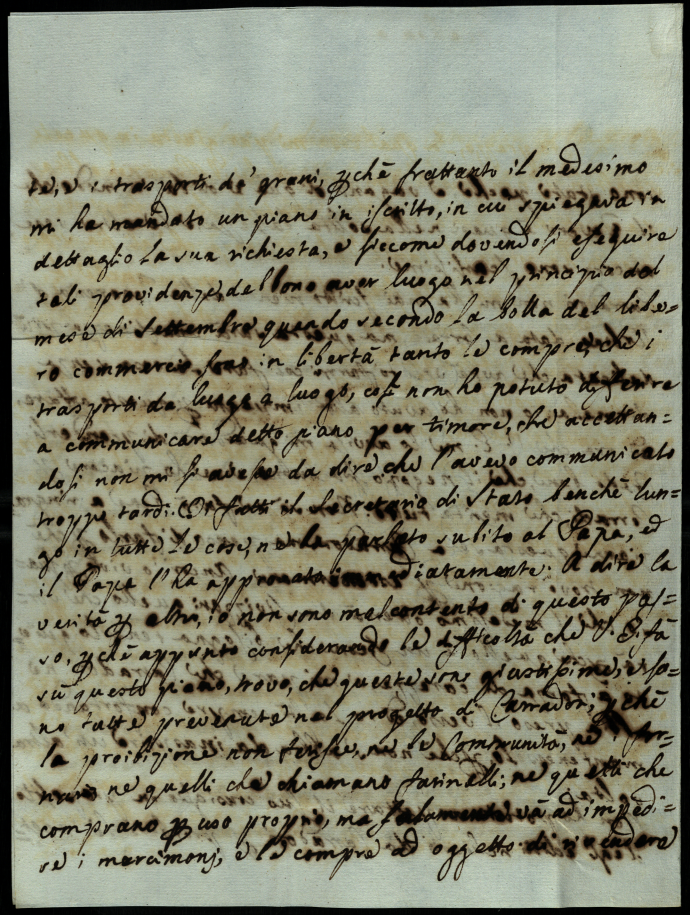 te, e i trasporti de' grani, p chè frattanto il medesimo
mi ha mandato un piano in iscritto, in cui spiegava in
dettaglio la sua richiesta, e siccome dovendosi eseguire
tali providenze, debbono aver luogo nel principio del
mese di Settembre quando secondo la bolla del libe=
ro commercio sono in libertà tanto le compre, che i
trasporti da luogo a luogo, così non ho potuto differire
a communicare detto piano per timore, che accettan=
dosi non mi si avesse da dire che l'avevo communicato
troppo tardi. Di fatti il Secretario di Stato benchè lun=
go in tutte le cose, ne ha parlato subito al Papa, ed
il Papa l'ha approvata immediatamente. A dire la
verità p altro, io non sono malcontento di questo pas=
so, p chè appunto considerando le difficoltà che V. E. fà
sù questo piano, trovo, che queste sono giustissime, e so=
no tutte prevenute nel progetto di Carradori; p chè
la proibizione non ferisce, nè le Communità, nè i for=
nari, nè quelli che chiamano farinelli; nè quelli che
comprano p uso proprio, ma solamente và ad impedi=
re i marcimonj, e le compre ad oggetto di rivendere